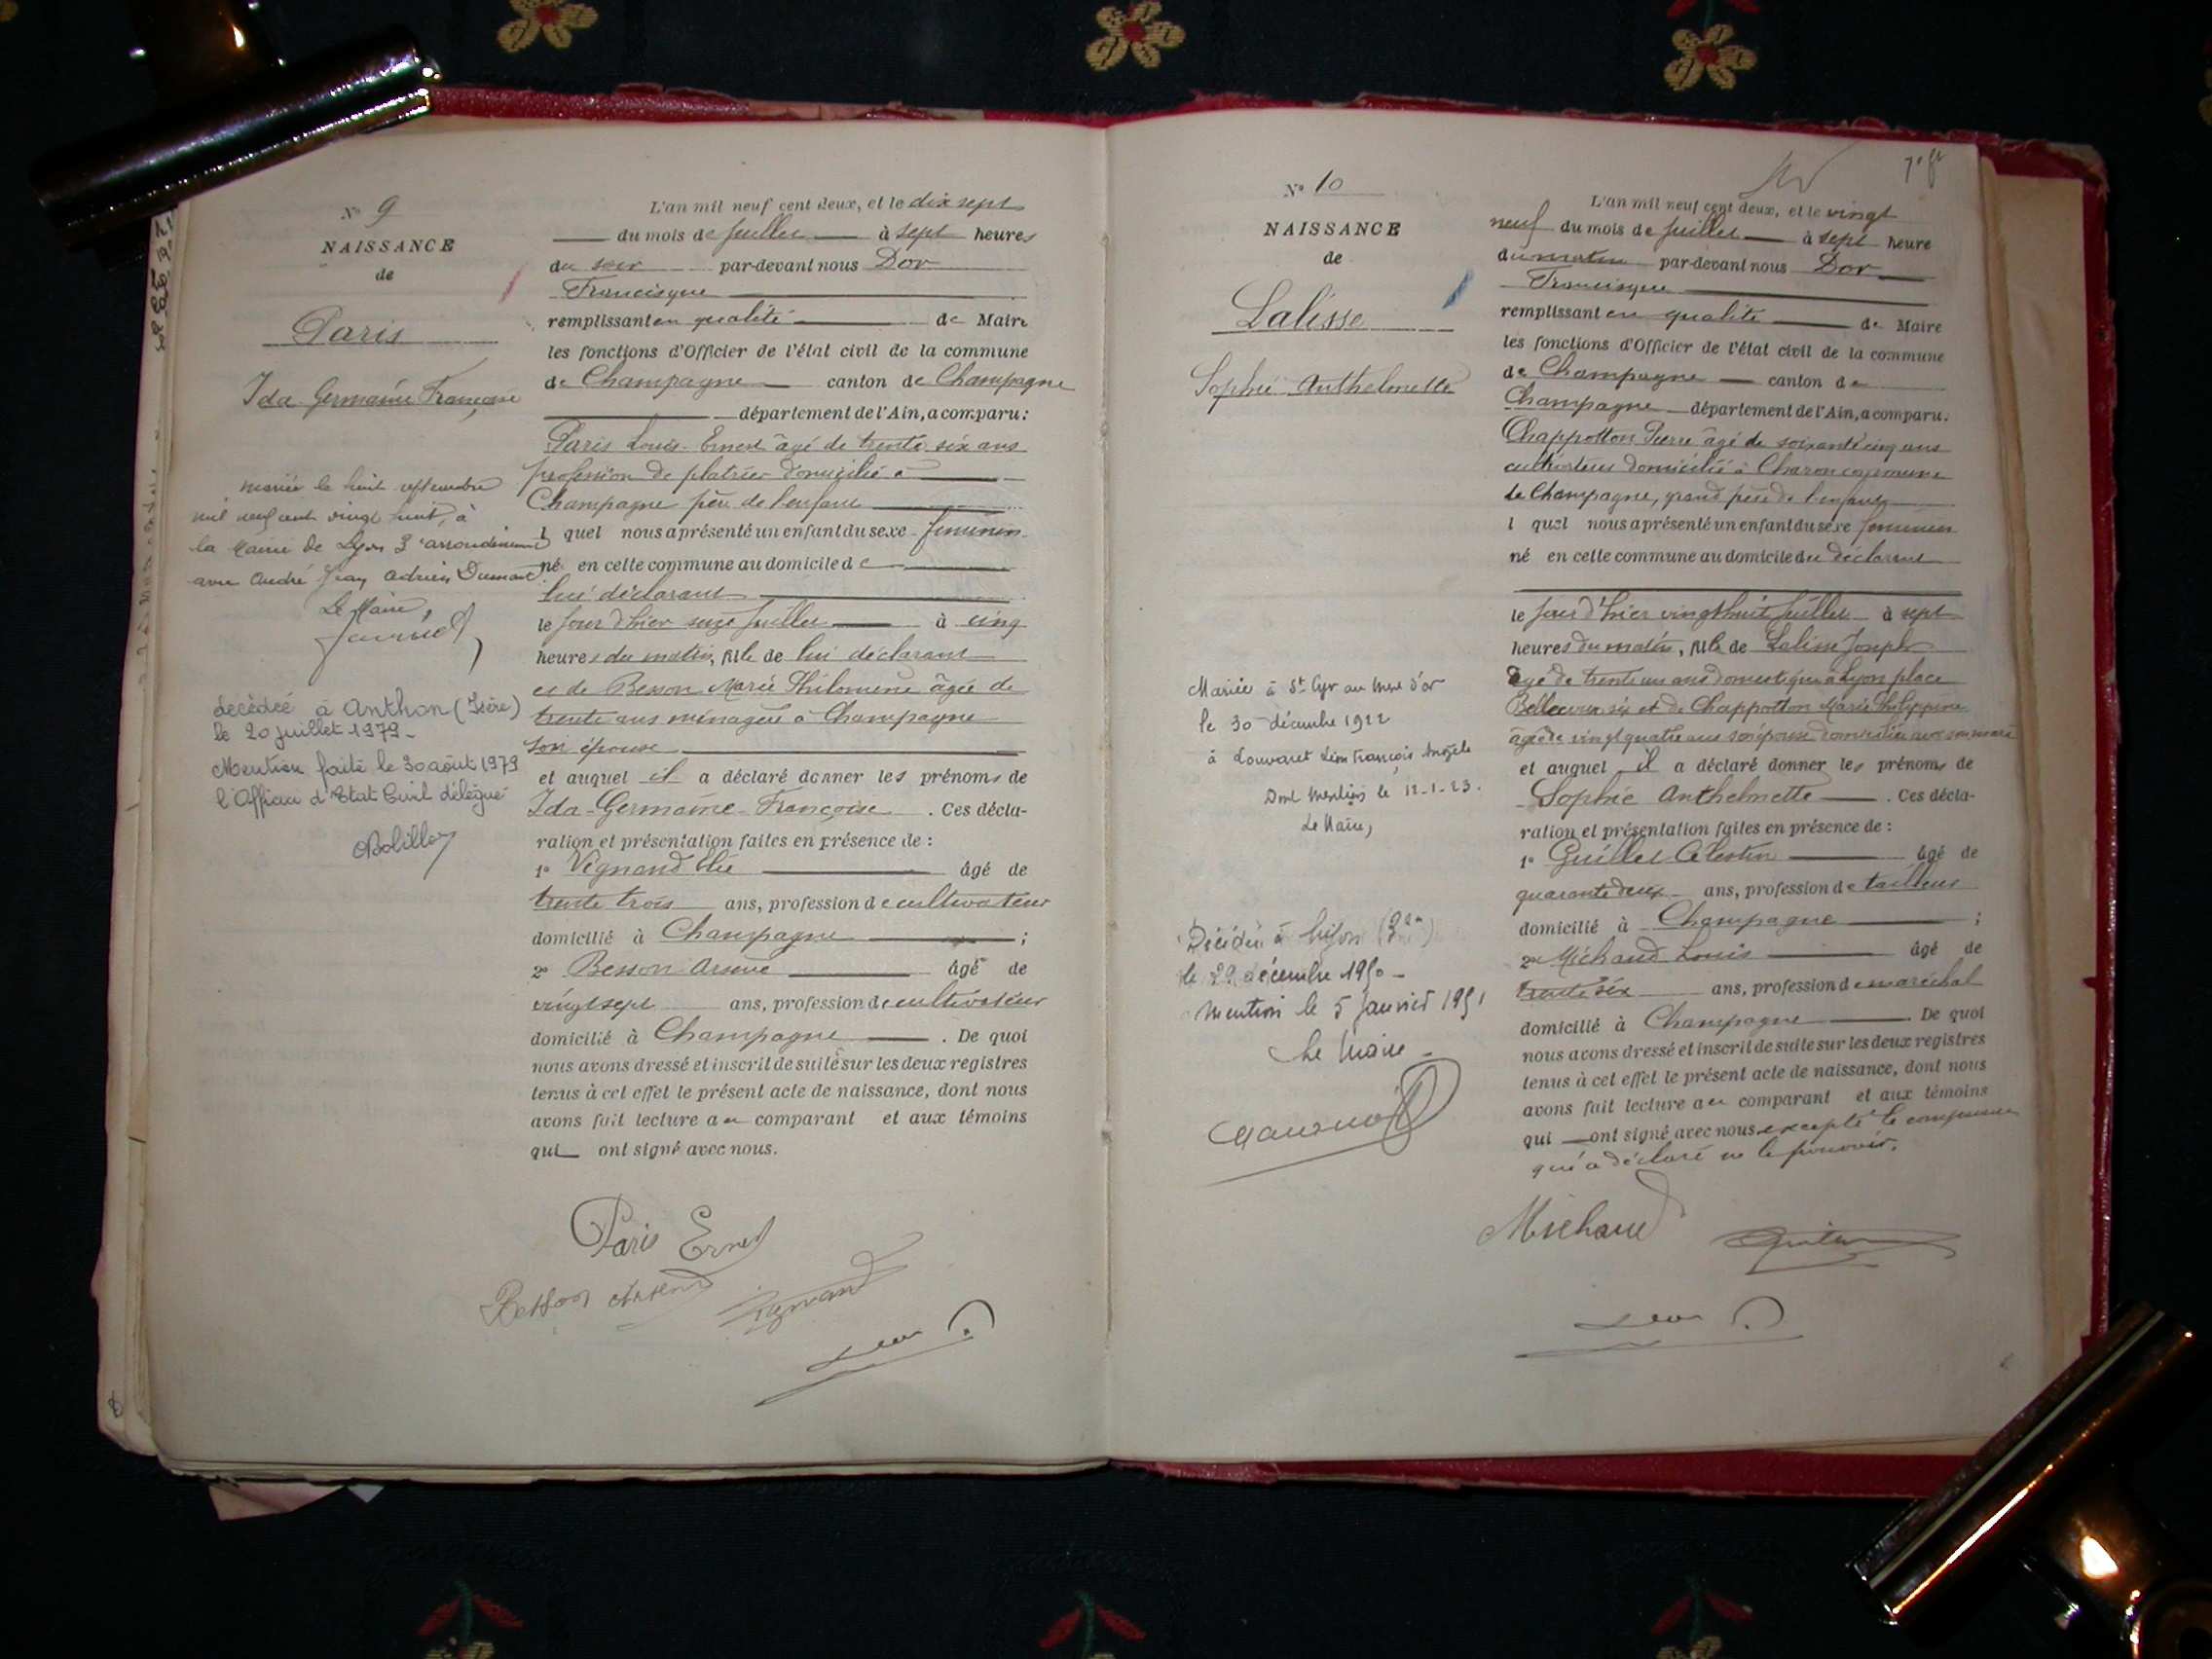 N° 9
NAISSANCE
de
Paris
Ida Germaine Françoise
mariée le huit septembre
mil neuf cent vingt huit, à
la Mairie de Lyon 3e arrondissement
avec André Jean Adrien Dumont
Le Maire,
décédée à Anthon (Isère)
le 20 juillet 1979-
Mention faite le 30 août 1979
l'Officier d'Etat Civil délégué
L'an mil neuf cent deux, et le dix sept
du mois de juillet à sept heures
du soir par-devant nous Dor
Francisque
remplissant en qualité de Maire
les fonctions d'Officier de l'état civil de la commune
de Champagne canton de Champagne
département de l'Ain, a comparu:
Paris Louis Ernest âgé de trente six ans
profession de platrier domicilié à
Champagne père de l'enfant
l quel nous a présenté un enfant du sexe féminin
né en cette commune au domicile de
lui déclarant
le jour d'hier seize juillet à cinq
heures du matin, fille de lui déclarant
et de Besson Marie Philomène âgée de
trente ans ménagère à Champagne
son épouse
et auquel il a déclaré donner les prénoms de
Ida-Germaine-Françoise. Ces décla-
ration et présentation faites en présence de :
1° Vignand Elie âgé de
trente trois ans, profession de cultivateur
domicilié à Champagne ;
2° Besson Arsène âgé de
vingt sept ans, profession de cultivateur
domicilié à Champagne. De quoi
nous avons dressé et inscrit de suite sur les deux registres
tenus à cet effet le présent acte de naissance, dont nous
avons fait lecture au comparant et aux témoins
qui ont signé avec nous.
Paris Ernest
Besson Arsène Vignand
N° 10
NAISSANCE
de
Lalisse
Sophie Anthelmette
Mariée à St Cyr au Mont d'or
le 30 décembre 1922
à Louvaret Léon François Angèle
Dont Mention le 12-1-23.
Le Maire,
Décédée à Lyon
le 29 décembre 1950-
Mention le 5 Janvier 1951
Le Maire-
L'an mil neuf cent deux, et le vingt
neuf du mois de juillet à sept heure
du matin par-devant nous Dor
Francisque
remplissant en qualité de Maire
les fonctions d'Officier de l'état civil de la commune
de Champagne canton de
Champagne département de l'Ain, a comparu.
Chappotton Pierre âgé de soixante cinq ans
cultivateur domicilié à Charon commune
de Champagne, grand père de l'enfant
l quel nous a présenté un enfant du sexe féminin
né en cette commune au domicile du déclarant
le jour d'hier vingt huit juillet à sept
heures du matin, fille de Lalisse Joseph
âgé de trente un ans domestique à Lyon place
Bellecour six et de Chappotton Marie Philippine
âgée de vingt quatre ans son épouse domiciliée avec son mari
et auquel il a déclaré donner les prénoms de
Sophie Anthelmette. Ces décla-
ration et présentation faites en présence de :
1° Guillet Célestin âgé de
quarante deux ans, profession de tailleur
domicilié à Champagne ;
2° Michaud Louis âgé de
trente six ans, profession de maréchal
domicilié à Champagne. De quoi
nous avons dressé et inscrit de suite sur les deux registres
tenus à cet effet le présent acte de naissance, dont nous
avons fait lecture au comparant et aux témoins
qui ont signé avec nous excepté le comparant
qui a déclaré ne le pouvoir.
Michaud